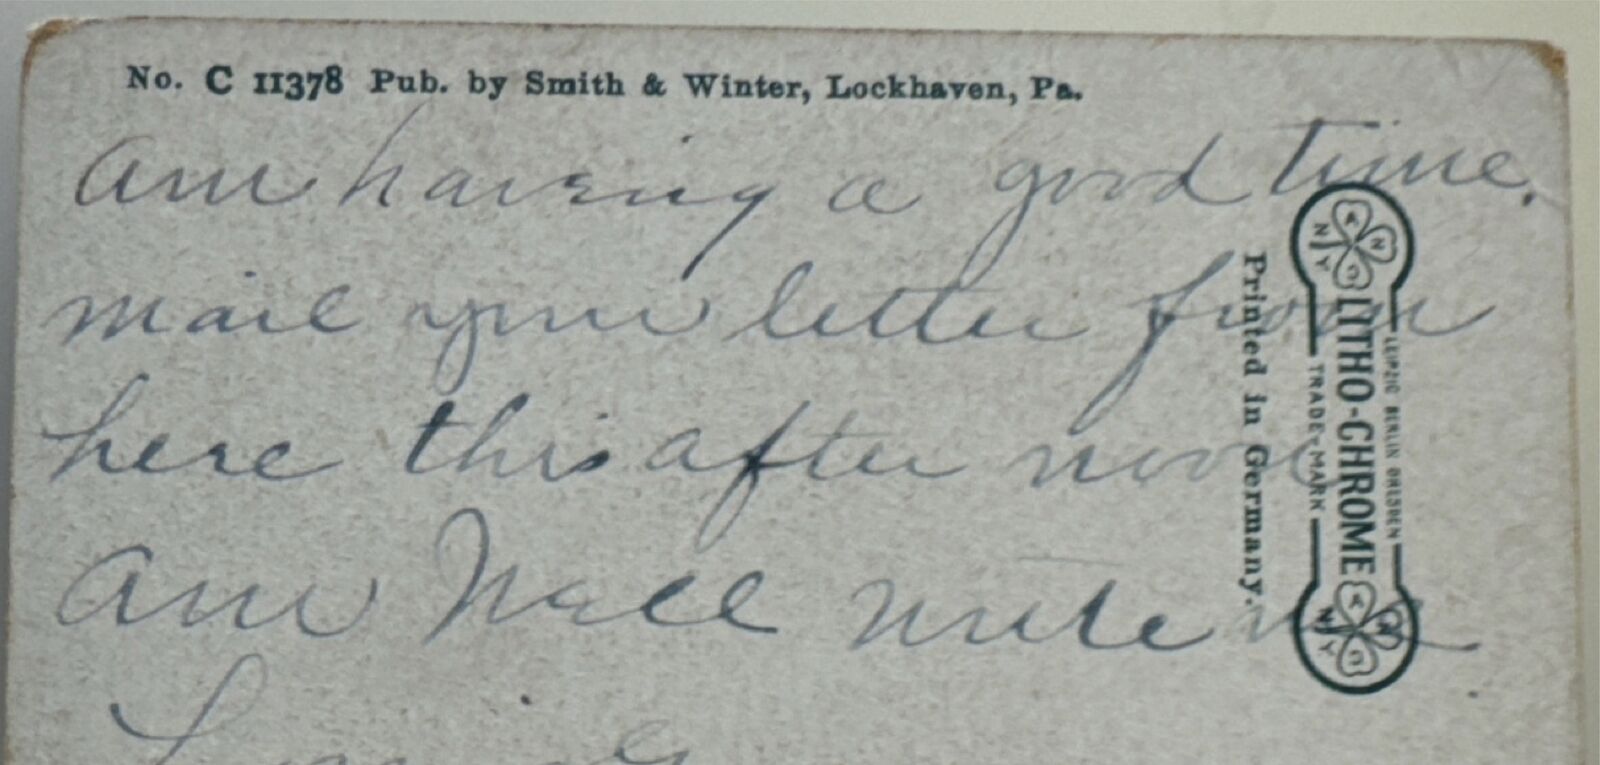 No. C 11378 Pub. by Smith & Winter, Lockhaven, Pa.
am having a good time.
mail your letter from
here this after noon
am Well write me
Printed in Germany.
LEIPZIG BERLIN DRESDEN
LITHO-CHROME
TRADE-MARK
A N G
N Y
A N G
N Y